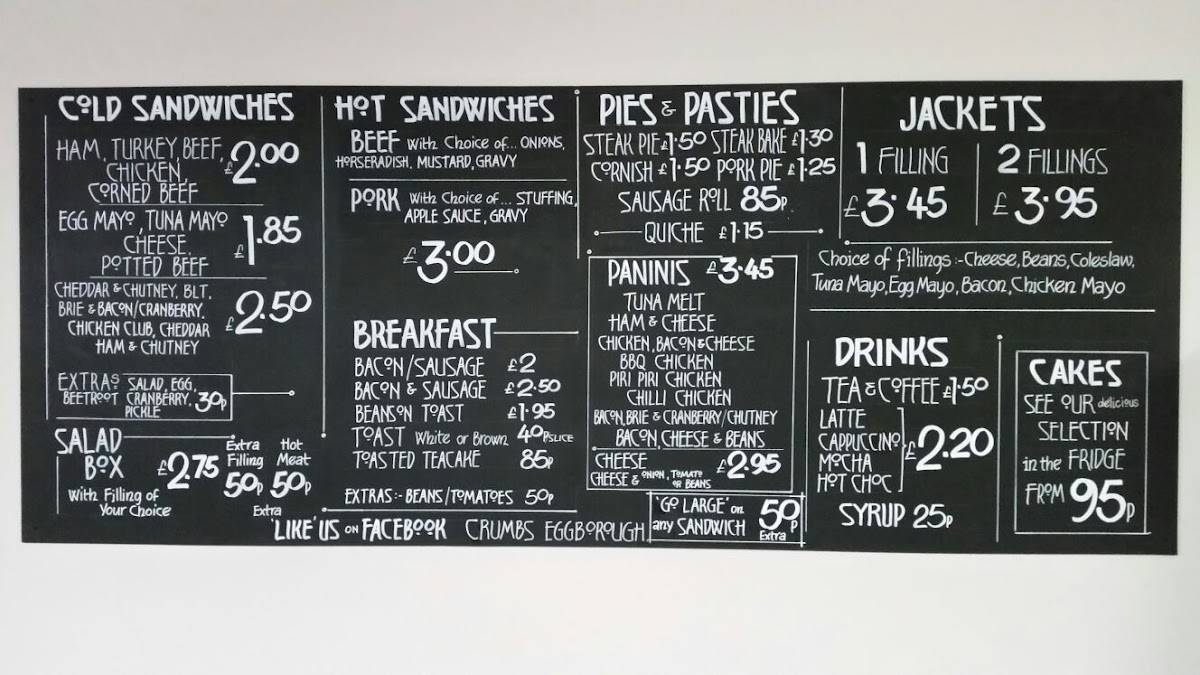 COLD SANDWICHES
HAM, TURKEY, BEEF,
CHICKEN,
CORNED BEEF
£2.00
EGG MAYO, TUNA MAYO
CHEESE.
POTTED BEEF
£1.85
CHEDDAR & CHUTNEY, BLT,
BRIE & BACON/CRANBERRY.
CHICKEN CLUB, CHEDDAR
HAM & CHUTNEY
£2.50
EXTRAS SALAD, EGG,
BEETROOT CRANBERRY,
PICKLE
30p
SALAD
BOX
£2.75
With Filling of
Your Choice
Extra
Filling
50p
Hot
Meat
50p
Extra
HOT SANDWICHES
BEEF With Choice of... ONIONS,
HORSERADISH, MUSTARD, GRAVY
PORK With Choice of... STUFFING,
APPLE SAUCE, GRAVY
£3.00
BREAKFAST
BACON/SAUSAGE £2
BACON & SAUSAGE £2.50
BEANS ON TOAST £1.95
TOAST White or Brown 40P SLICE
TOASTED TEACAKE 85p
EXTRAS:- BEANS/TOMATOES 50p
PIES & PASTIES
STEAK PIE £1.50 STEAK BAKE £1.30
CORNISH £1.50 PORK PIE £1.25
SAUSAGE ROLL 85p.
QUICHE £1.15
PANINIS £3.45
TUNA MELT
HAM & CHEESE
CHICKEN, BACON & CHEESE
BBQ CHICKEN
PIRI PIRI CHICKEN
CHILLI CHICKEN
BACON, BRIE & CRANBERRY/CHUTNEY
BACON, CHEESE & BEANS
CHEESE
CHEESE & ONION, TOMATO
OR BEANS
£2.95
'GO LARGE' on
any SANDWICH
50p
Extra
JACKETS
1 FILLING
£3.45
2 FILLINGS
£3.95
Choice of fillings:-Cheese, Beans, Coleslaw,
Tuna Mayo, Egg Mayo, Bacon, Chicken Mayo
DRINKS
TEA & COFFEE £1.50
LATTE
CAPPUCCINO
MOCHA
HOT CHOC
£2.20
SYRUP 25p
CAKES
SEE OUR delicious
SELECTION
in the FRIDGE
FROM 95p
'LIKE' US ON FACEBOOK CRUMBS EGGBOROUGH